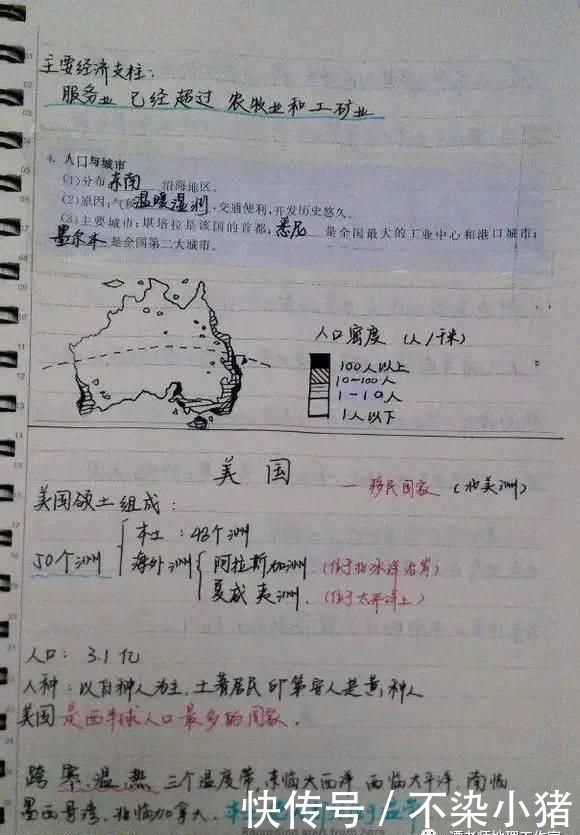 主要经济支柱：
服务业 已经超过 农牧业和工矿业
4. 人口与城市
(1)分布东南沿海地区。
(2)原因：气候温暖湿润，交通便利，开发历史悠久。
(3)主要城市：堪培拉是该国的首都；悉尼是全国最大的工业中心和港口城市；
墨尔本是全国第二大城市。
人口密度（人/千米）
100人以上
10~100人
1-10人
1人以下
美国 移民国家（北美洲）
美国领土组成：
本土：48个洲
50个洲 海外洲 阿拉斯加洲（位于北冰洋沿岸）
夏威夷洲．（位于太平洋上）
人口：3.1亿
人种：以白种人为主．土著居民印第安人是黄种人
美国是西半球人口最多的国家．
跨寒．温．热三个温度带，东临大西洋 西临太平洋，南临
墨西哥湾，北临加拿大．
快传号／不染小猪